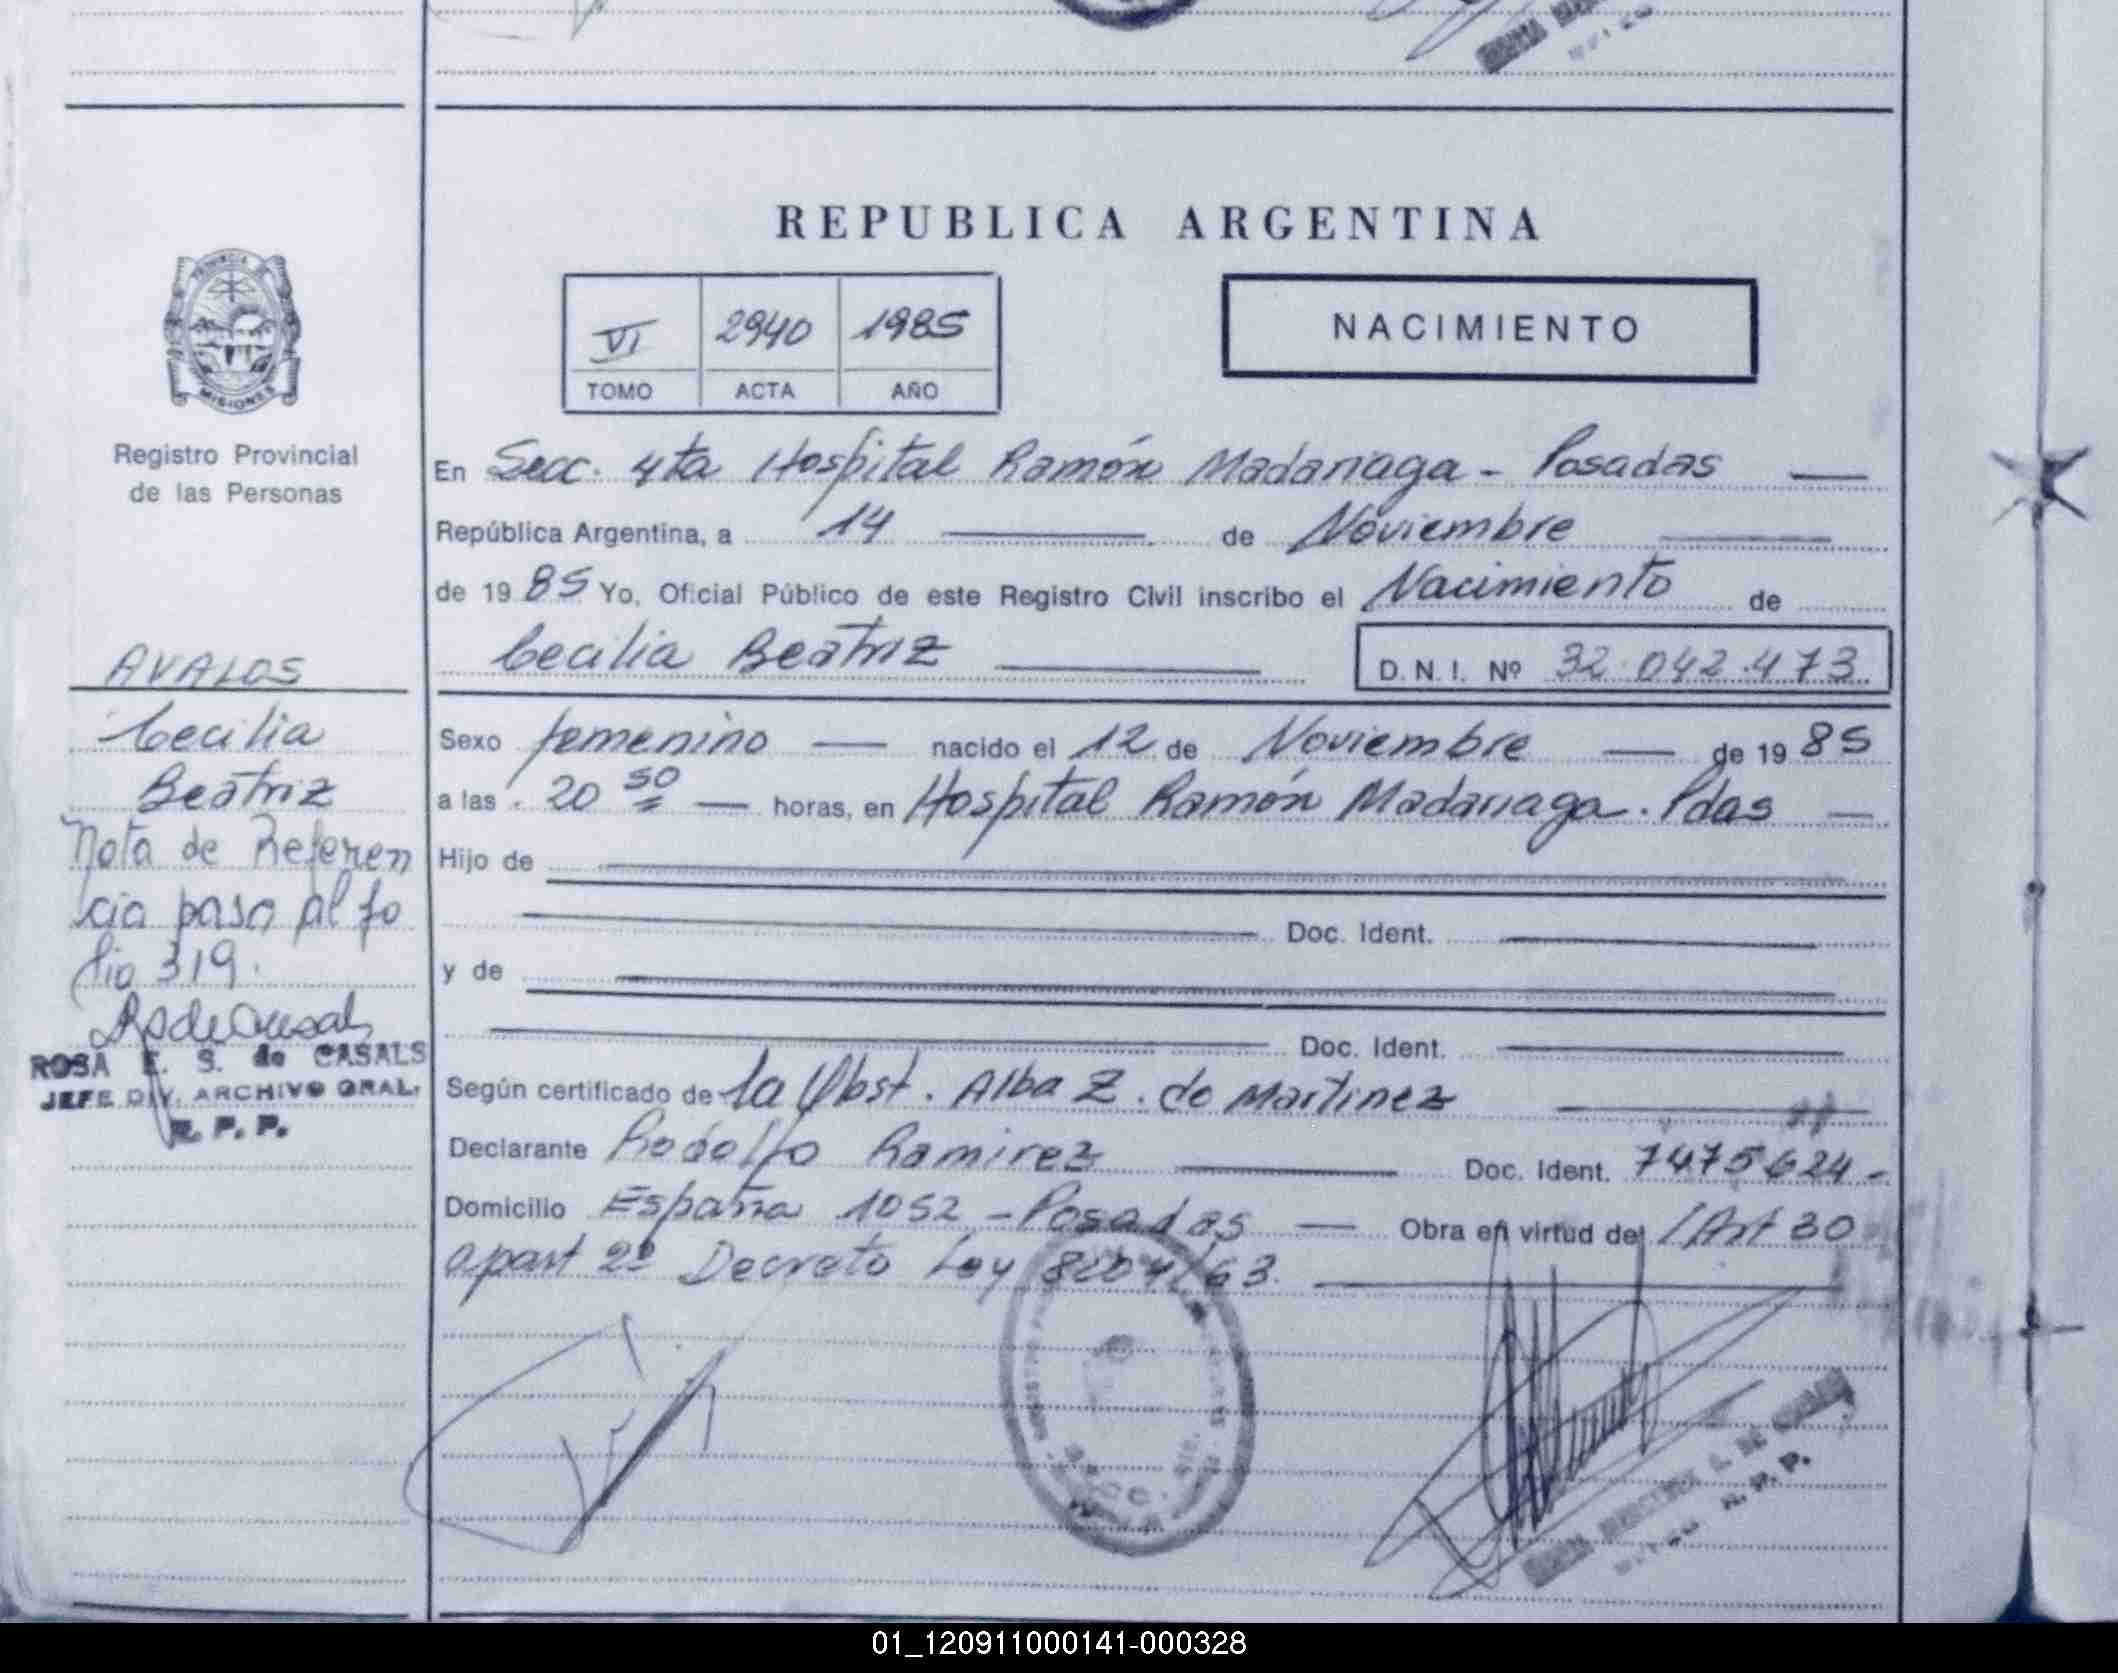 REPUBLICA ARGENTINA
VI 2940 1985
TOMO ACTA AÑO
NACIMIENTO
PROVINCIA DE
MISIONES
Registro Provincial
de las Personas
En Secc. 4ta Hospital Ramón Madariaga - Posadas
República Argentina, a 14 de Noviembre
de 1985 Yo, Oficial Público de este Registro Civil inscribo el Nacimiento de
Cecilia Beatriz D.N.I. Nº 32.042.473
AVALOS
Cecilia
Beatriz
Nota de Referen
cia paso al fo
lio 319.
ROSA E. S. de CASALS
JEFE DIV. ARCHIVO GRAL.
R. P. P.
Sexo femenino nacido el 12 de Noviembre de 1985
a las 20 50 horas, en Hospital Ramón Madariaga. Pdas
Hijo de
Doc. Ident.
y de
Doc. Ident.
Según certificado de la Obst. Alba Z. de Martinez
Declarante Rodolfo Ramirez Doc. Ident. 7475624-
Domicilio España 1052 - Posadas Obra en virtud del Art 30
apart 2º Decreto Ley 8204/63.
R. P. P.
01_120911000141-000328